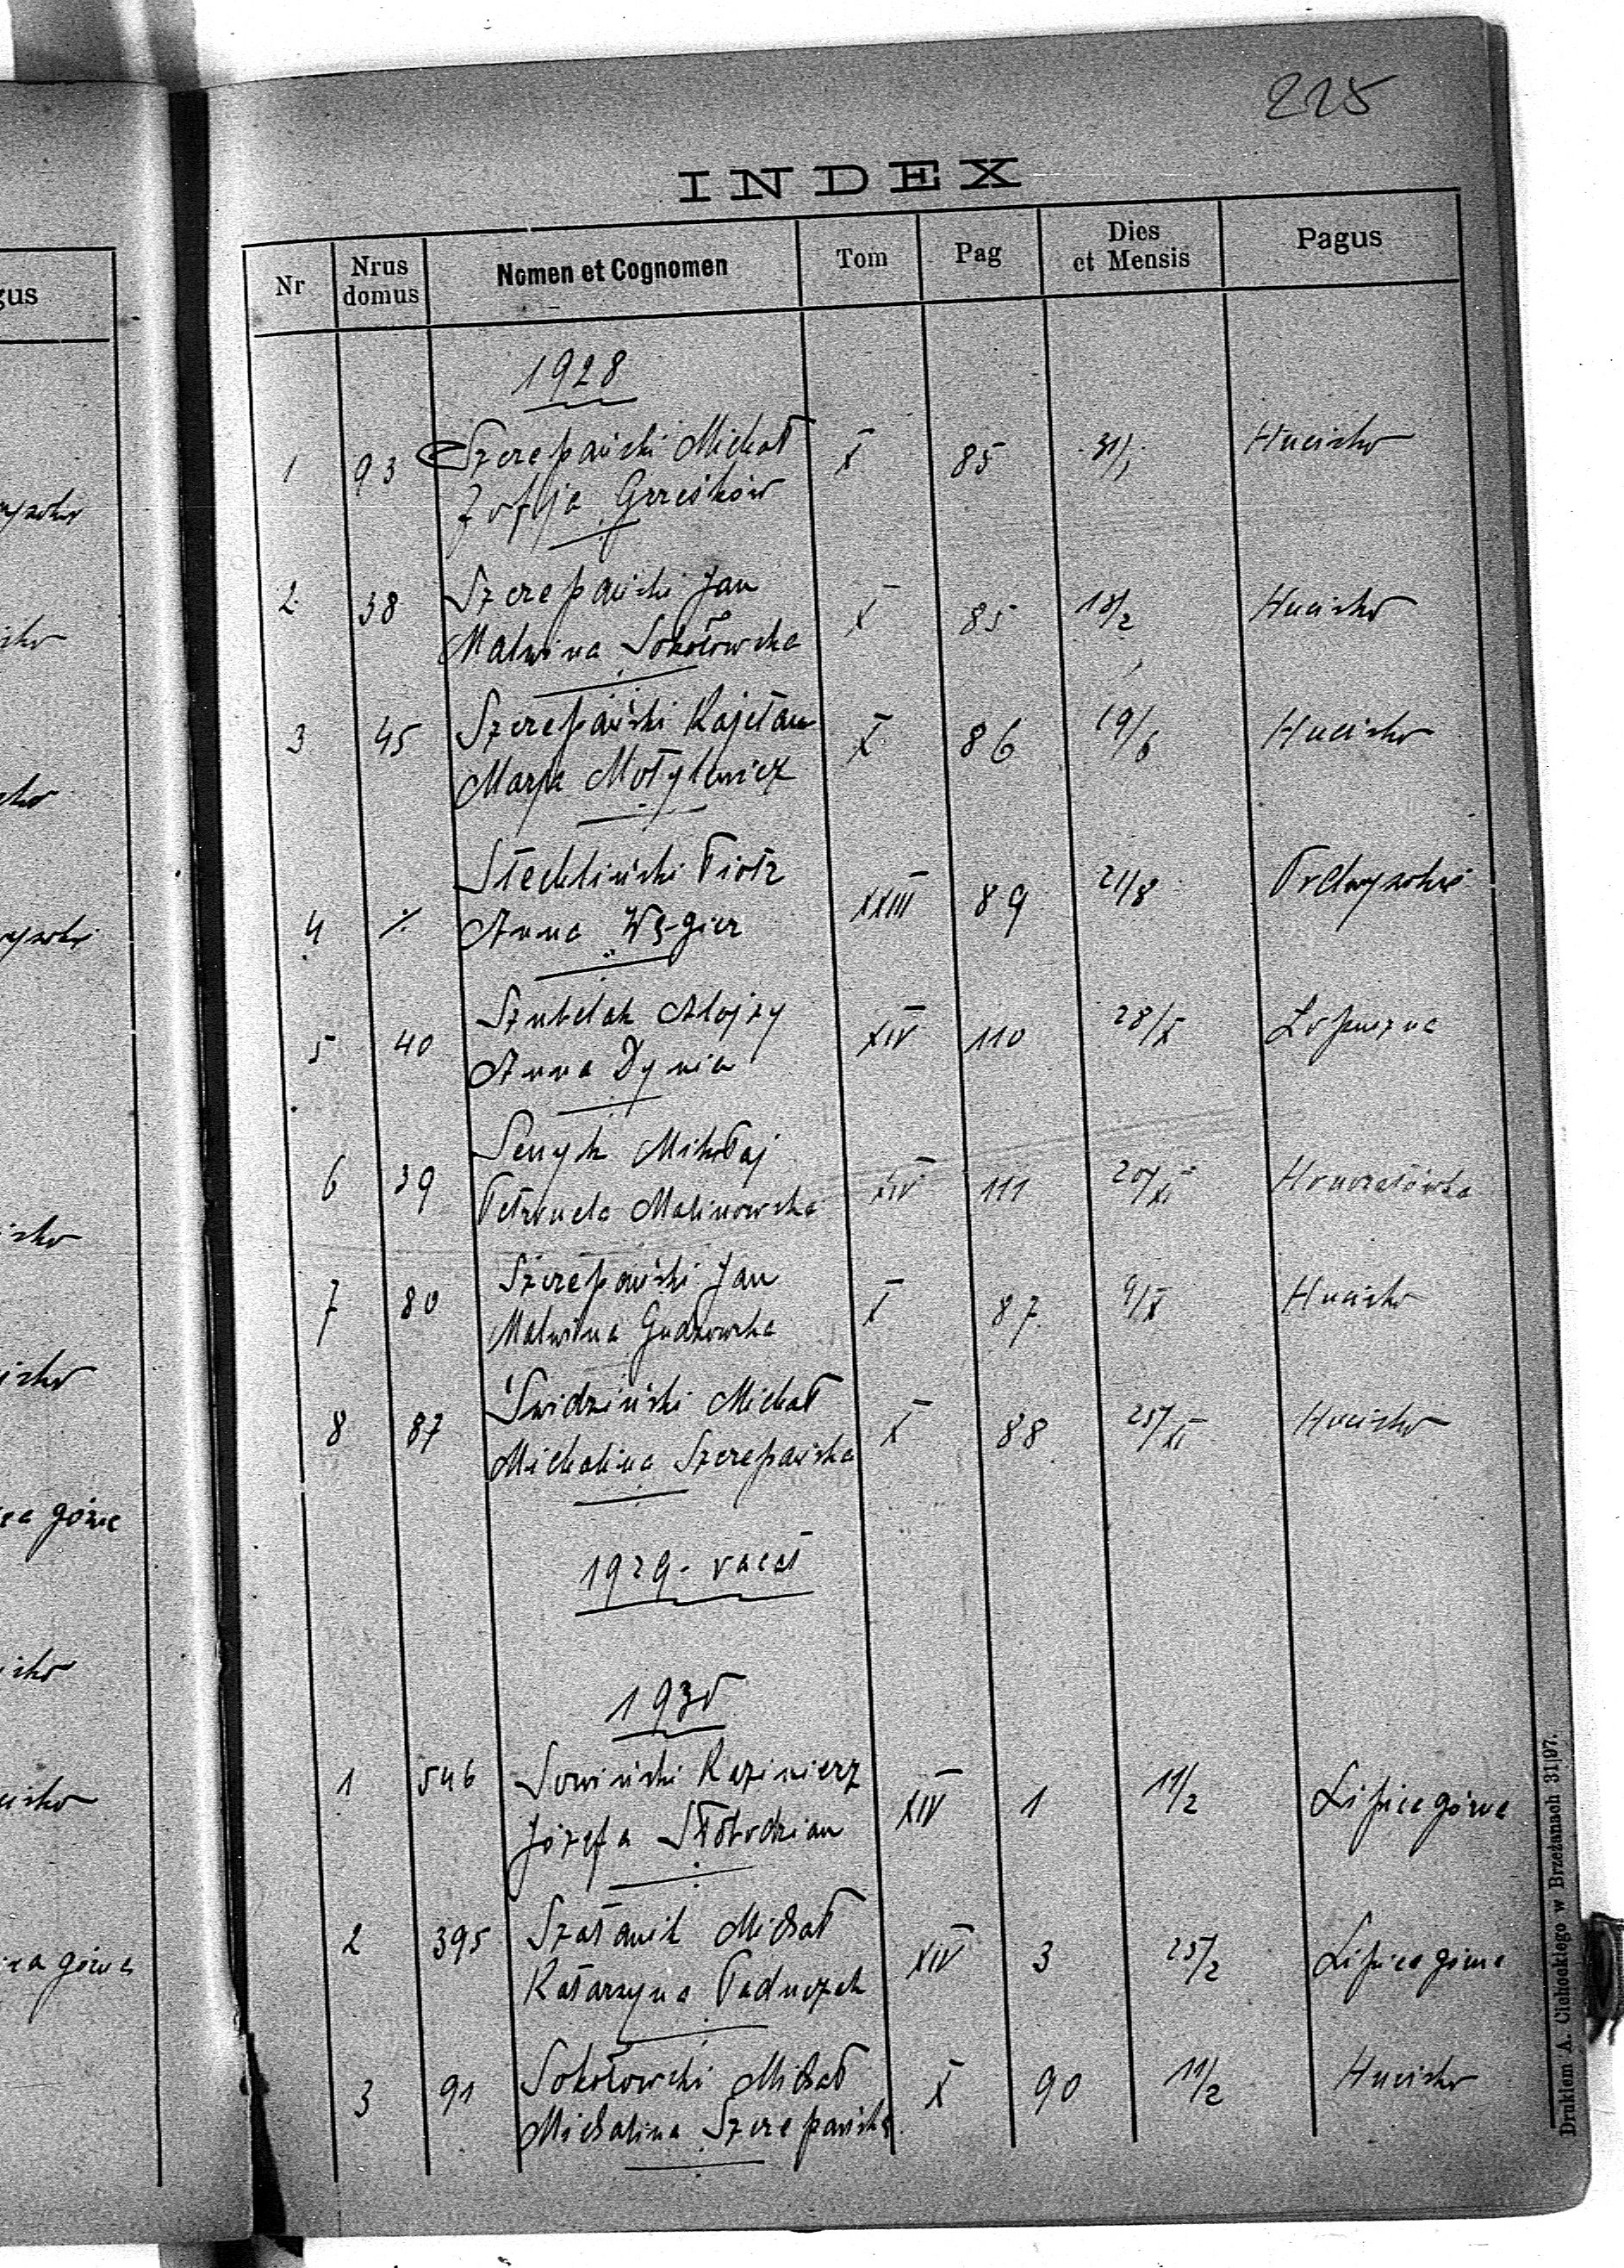 225
INDEX
Nr
Nrus domus
Nomen et Cognomen
Tom
Pag
Dies et Mensis
Pagus
1928
1 93 Szerepański Michał X 85 31/1 Hucisko
Zofija Grześków
2 38 Szerepański Jan X 85 18/2 Hucisko
Malwina Sokołowska
3 45 Szerepański Kajetan X 86 19/6 Hucisko
Marja Motylewicz
Stechliński Piotr XXIII 89 21/8 Podwysokie
4 % Anna Węgier
5 40 Szubelak Alojzy XIV 110 28/X Łopuszna
Anna Dynia
6 39 Senyk Mikołaj XIV 111 20/XI Honoratówka
Petronela Malinowska
7 80 Szerepański Jan X 87 9/X Hucisko
Malwina Gudzowska
8 87 Świdziński Michał X 88 25/XI Hucisko
Michalina Szerepańska
1929 - vacat
1930
1 546 Sowiński Kazimierz XIV 1 11/2 Lipica górna
Józefa Słobodzian
2 395 Szatanik Michał XIV 3 25/2 Lipica górna
Katarzyna
3 91 Sokołowski Michał X 90 11/2 Hucisko
Michalina Szerepańska
Drukiem A. Cichockiego w Brzeżanach 31|97.
gus
isko
isko
isko
górne
isko
górna